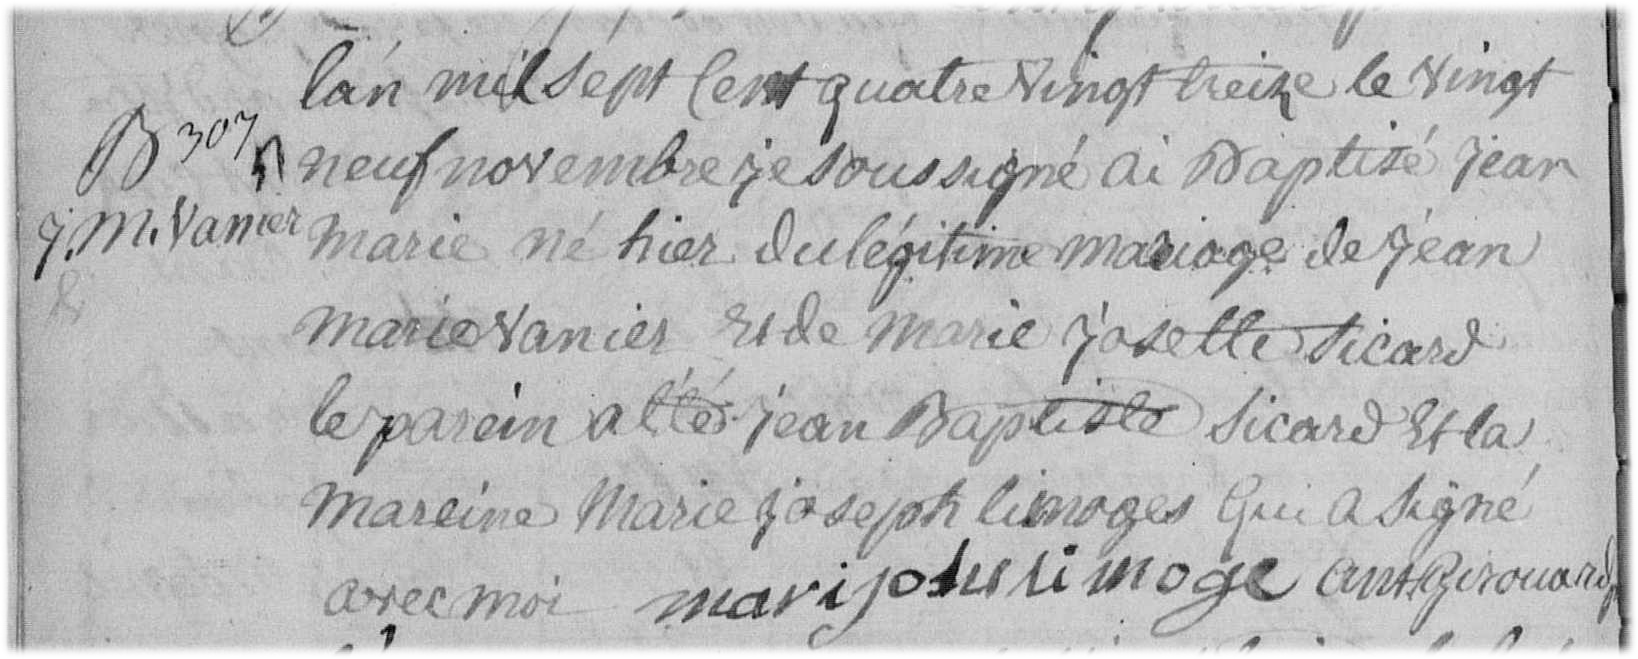 B 307
J. M. Vanier
lán mil sept Cent quatre Vingt treize le Vingt
neuf novembre je soussigné ai Baptisé jean
marie né hier du légitime mariage de jéan
marie Vanier Et de marie josette Sicard
le parein a été jean Baptiste Sicard Et la
mareine Marie joseph limoges Qui a Signé
avec moi mari limoge ant Girouard